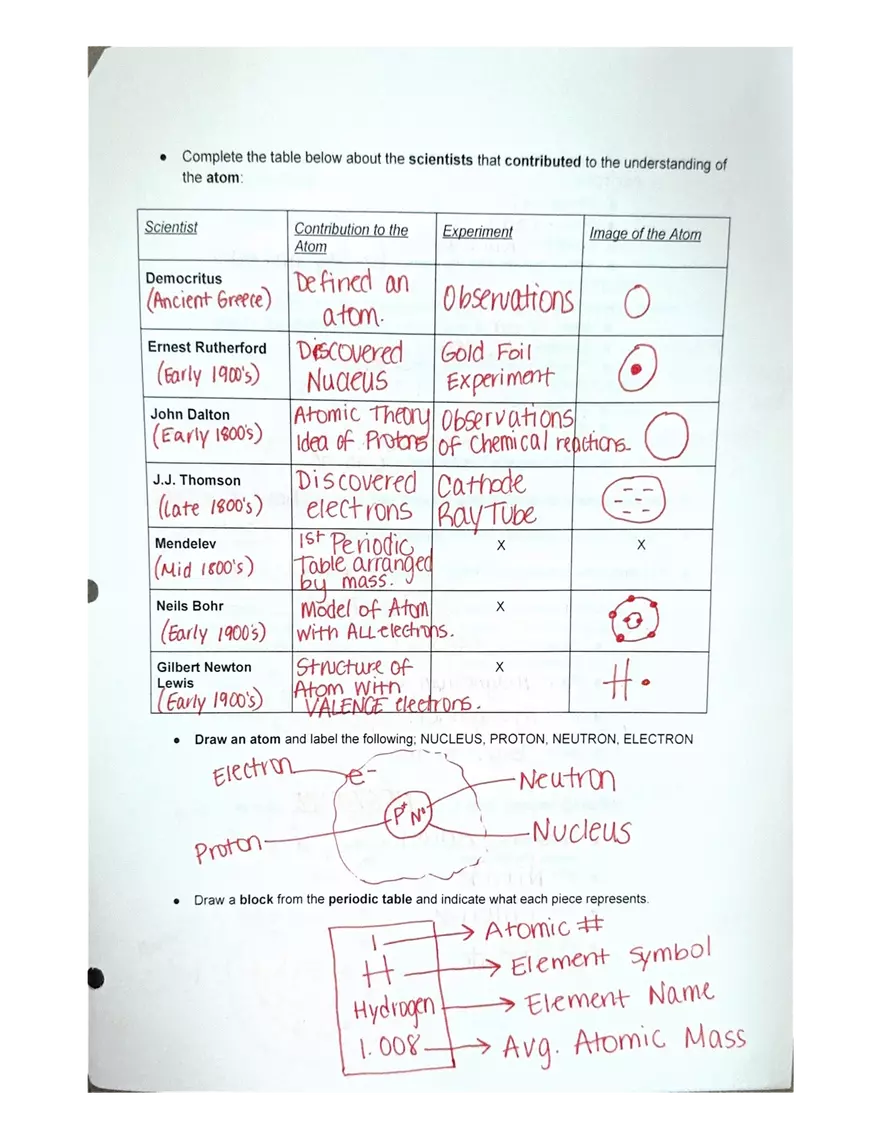 • Complete the table below about the scientists that contributed to the understanding of
the atom:
Scientist
Contribution to the
Atom
Experiment
Image of the Atom
Democritus
(Ancient Greece)
Defined an
atom.
Observations
Ernest Rutherford
(Early 1900's)
Discovered
Nucleus
Gold Foil
Experiment
John Dalton
(Early 1800's)
Atomic Theory
Idea of Protons
Observations
of Chemical reactions.
J.J. Thomson
(Late 1800's)
Discovered
electrons
Cathode
Ray Tube
Mendelev
(Mid 1800's)
1st Periodic
Table arranged
by mass.
X
X
Neils Bohr
(Early 1900's)
Model of Atom
with ALL electrons.
X
Gilbert Newton
Lewis
(Early 1900's)
Structure of
Atom with
VALENCE electrons.
X
H•
• Draw an atom and label the following; NUCLEUS, PROTON, NEUTRON, ELECTRON
Electron
e-
Neutron
P+ N°
Nucleus
Proton
• Draw a block from the periodic table and indicate what each piece represents.
1 → Atomic #
H → Element Symbol
Hydrogen → Element Name
1.008 → Avg. Atomic Mass